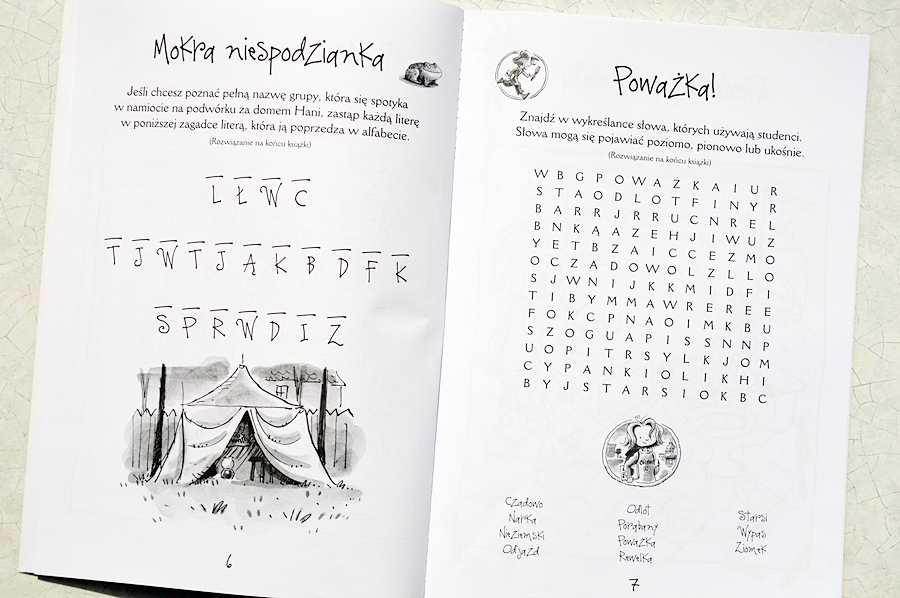 Mokra niespodzianka
Jeśli chcesz poznać pełną nazwę grupy, która się spotyka
w namiocie na podwórku za domem Hani, zastąp każdą literę
w poniższej zagadce literą, która ją poprzedza w alfabecie.
(Rozwiązanie na końcu książki)
L Ł W C
T J W T J Ą K B D F K
S P R W D I Z
6
Poważka!
Znajdź w wykreślance słowa, których używają studenci.
Słowa mogą się pojawiać poziomo, pionowo lub ukośnie.
(Rozwiązanie na końcu książki)
W B G P O W A Ż K A I U R
S T A O D L O T F I N Y R
B A R R J R R U C N R E L
B N K Ą A Z E H J I W U Z
Y E T B Z A I C C E Z M O
O C Z A D O W O L Z L L O
S J W N I J K K M I D F I
T I B Y M M A W R E R E E
F O K C P N A O I M K B U
S Z O G U A P I S S N N P
U O P I T R S Y L K J O M
C Y P A N K I O L I K H I
B Y J S T A R S I O K B C
Czadowo
Narka
Nieziemski
Odjazd
Odlot
Porąbany
Poważka
Rewelka
Starsi
Wypas
Ziomek
7